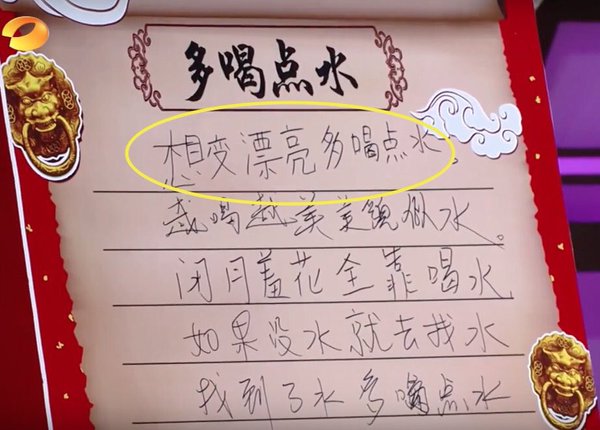 多喝点水
想变漂亮多喝点水。
越喝越美美貌似水。
闭月羞花全靠喝水
如果没水就去找水
找到了水多喝点水